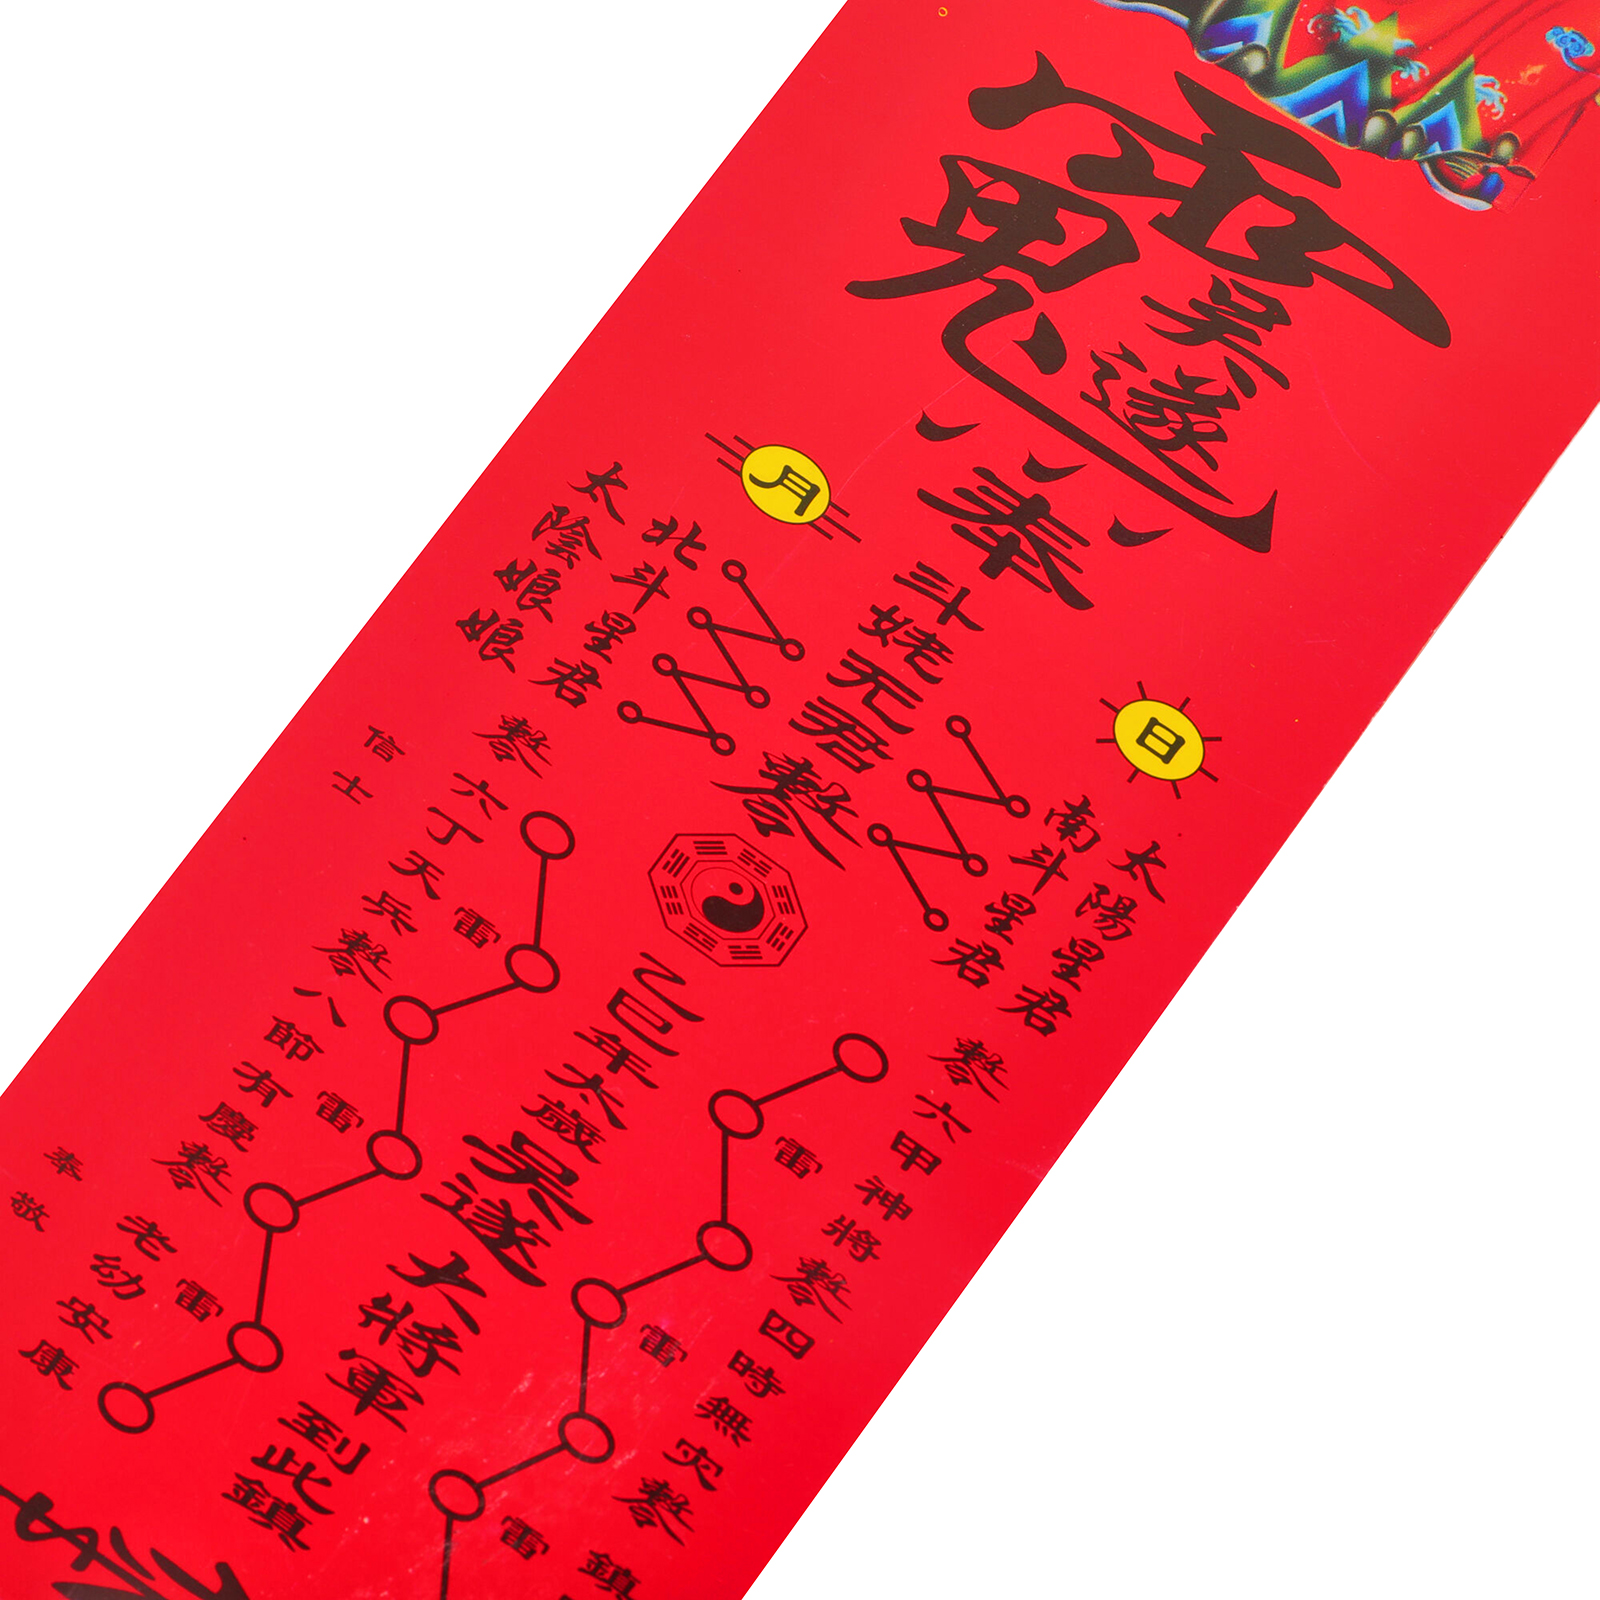 吳遂
奉
斗姥元君
日
月
南斗星君
太陽星君
北斗星君
太陰娘娘
六甲神將
四時無灾
鎮
六丁天兵
八節有慶
老幼安康
雷
雷
雷
雷
雷
雷
乙巳年太歲吳遂大將軍到此鎮
信士
奉敬